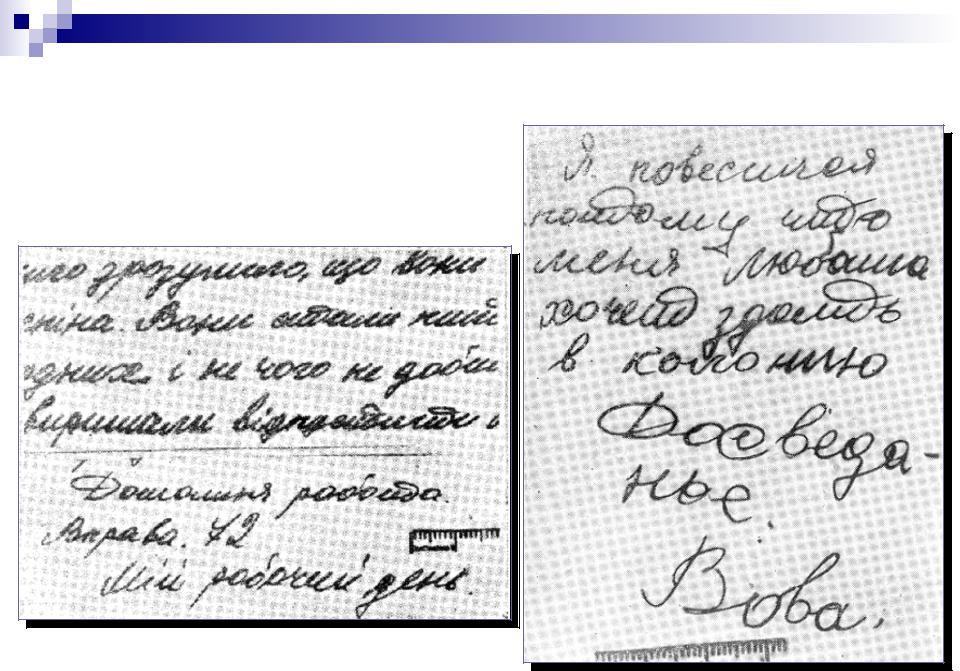 зрозумило, що вони
сніна. Вони стали
одних і не чого не
виришали відпустити і
Домашня работа.
Вправа. 72
Мій рабочий день.
Я повесился
потому што
меня любаша
хочет здать
в колонию
Досведа-
нье.
Вова.